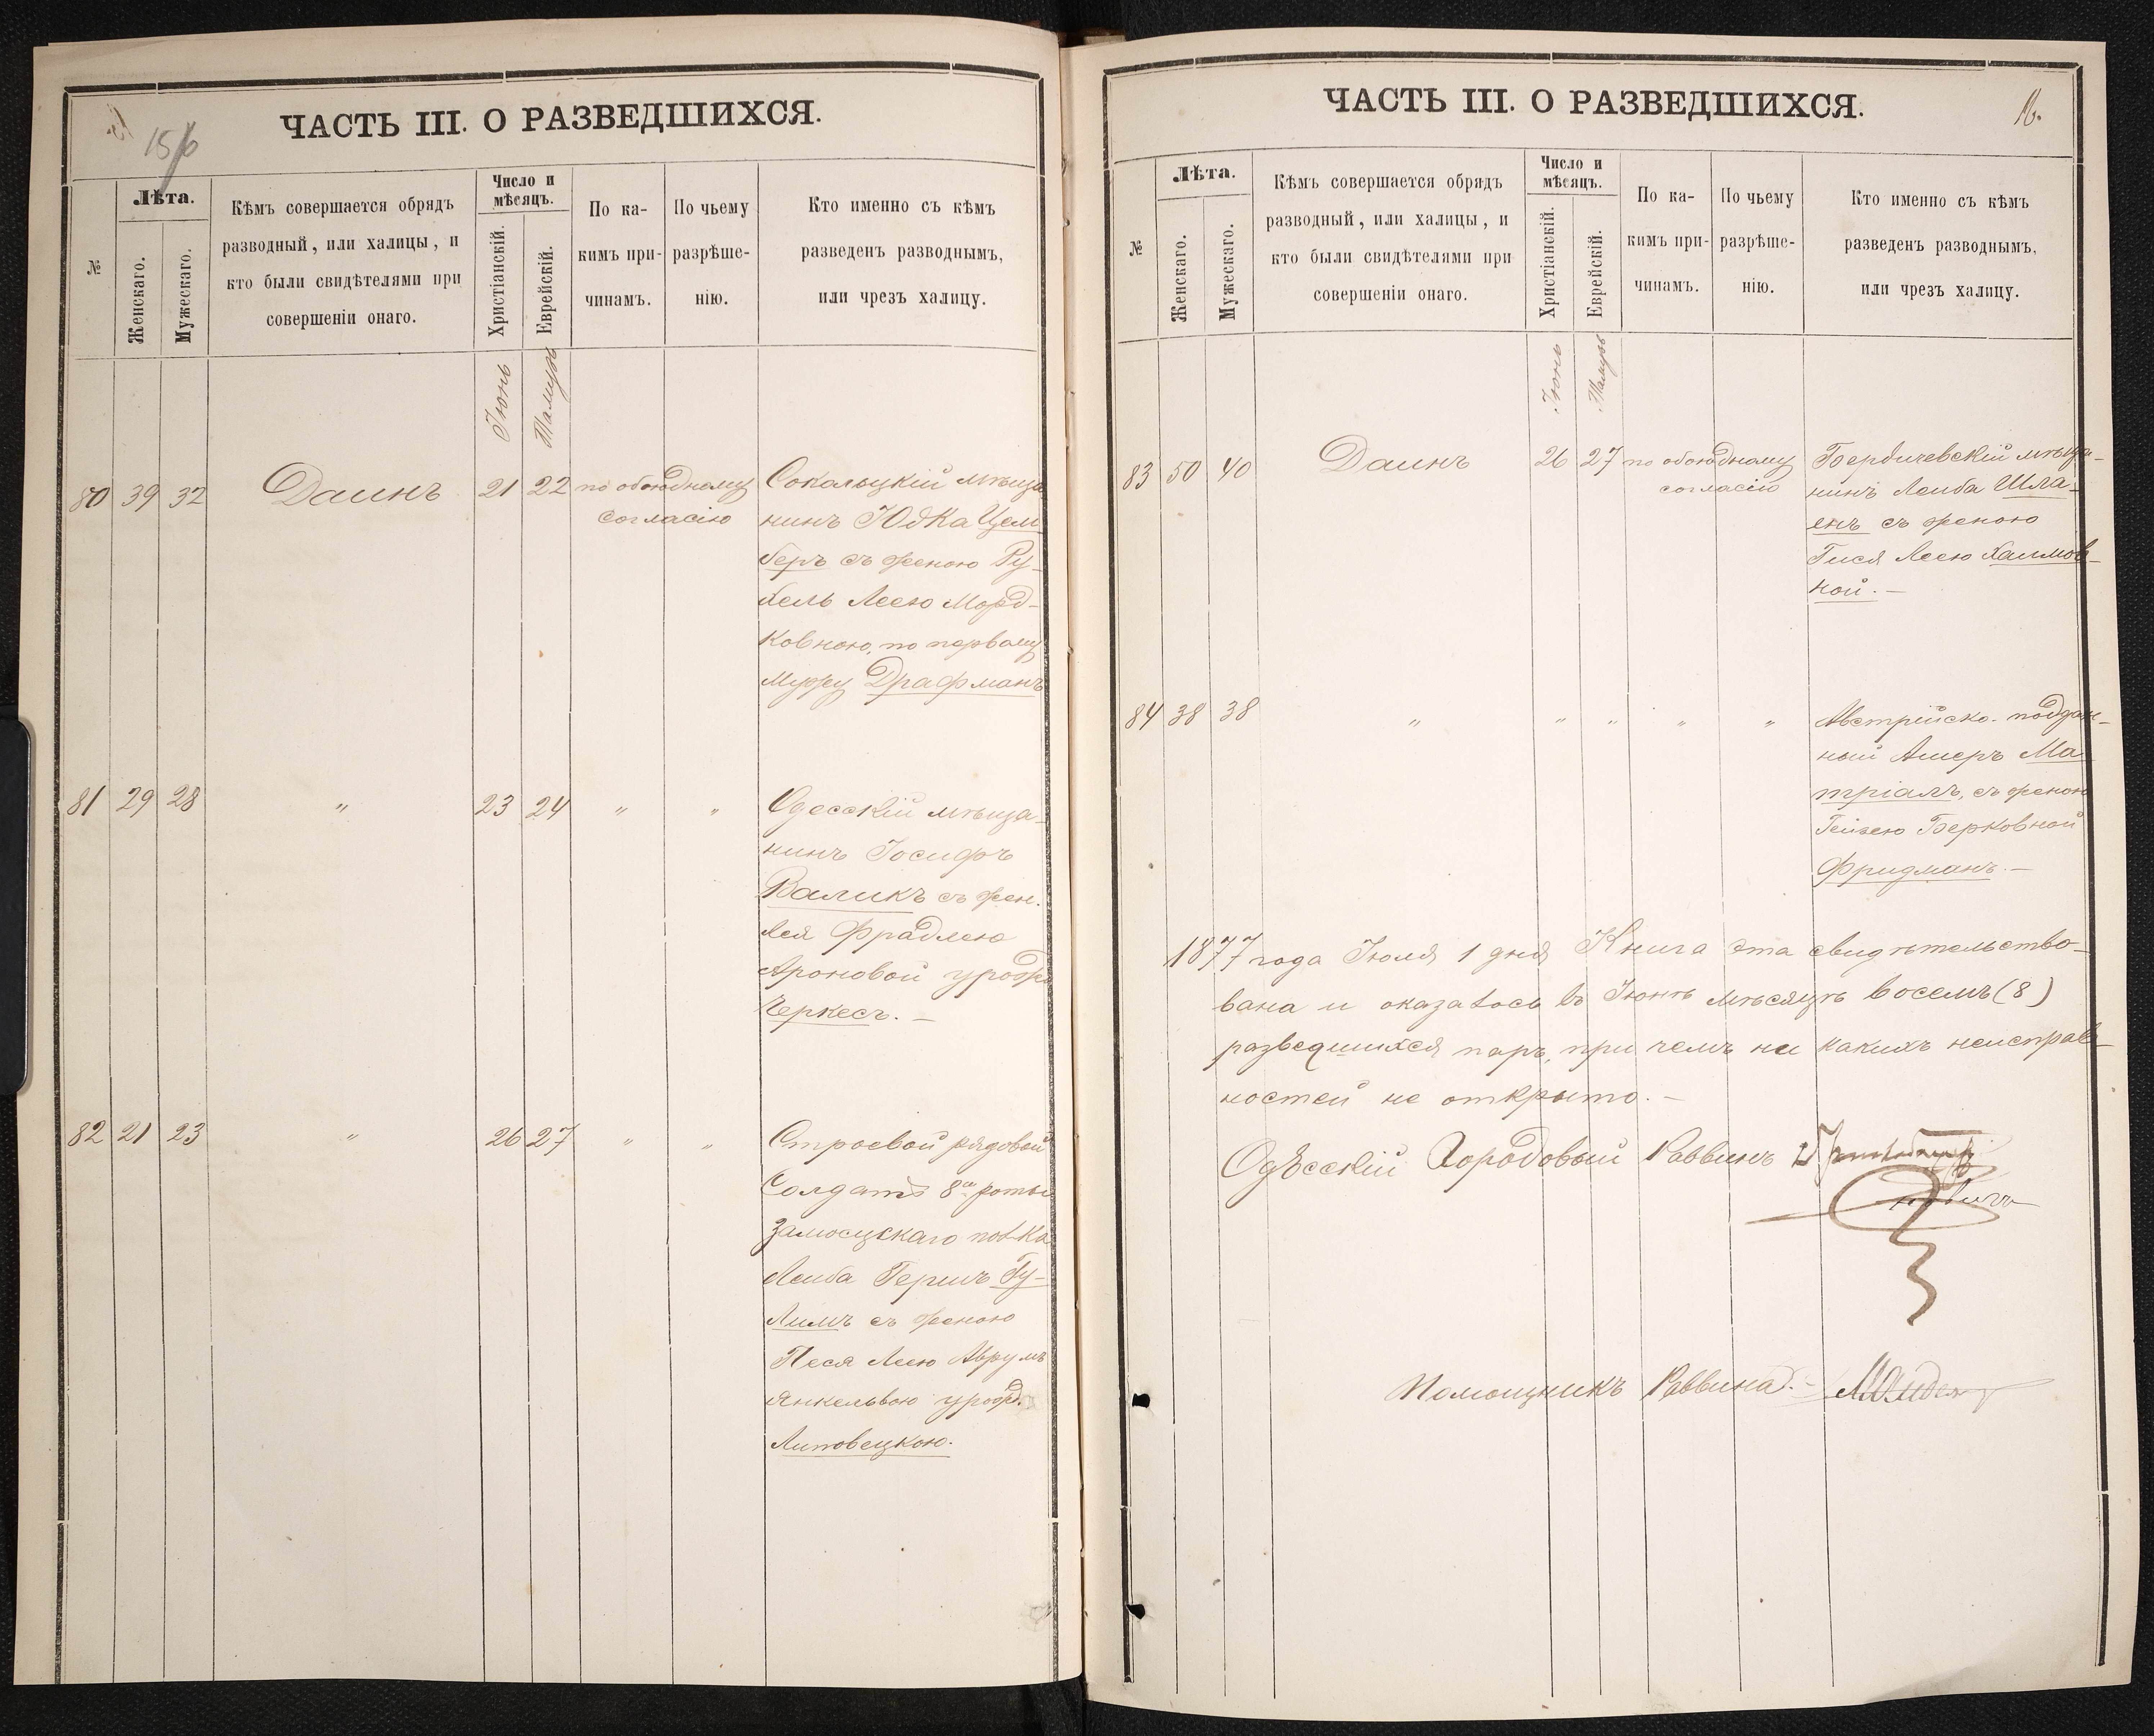 ЧАСТЬ III. О РАЗВЕДШИХСЯ.
№
Лѣта.
Женскаго.
Мужескаго.
Кѣмъ совершается обрядъ
разводный, или халицы, и
кто были свидѣтелями при
совершеніи онаго.
Число и
мѣсяцъ.
Христіанскій.
Еврейскій.
По ка-
кимъ при-
чинамъ.
По чьему
разрѣше-
нію.
Кто именно съ кѣмъ
разведенъ разводнымъ,
или чрезъ халицу.
Іюнь
Тамузъ
80 39 32 Даинъ 21 22 по обоюдному
согласію
Сокольцкій мѣща
нинъ Юдка Цем
беръ съ женою Ру-
хель Леею Морд-
ковною, по первому
мужу Драфманъ
81 29 28 " 23 24 " "
Одесскій мѣща-
нинъ Іосифъ
Валикъ съ жен.
Лея Фрадлею
Ароновой урожд
Черкесъ. —
82 21 23 " 26 27 " "
Строевой рядовой
Солдатъ 8ой роты
Замосцскаго полка
Лейба Гершъ Гу-
лимъ съ женою
Песя Леею Аврумъ
Янкельвою урожд.
Липовецкою.
ЧАСТЬ III. О РАЗВЕДШИХСЯ.
16.
№
Лѣта.
Женскаго.
Мужескаго.
Кѣмъ совершается обрядъ
разводный, или халицы, и
кто были свидѣтелями при
совершеніи онаго.
Число и
мѣсяцъ.
Христіанскій.
Еврейскій.
По ка-
кимъ при-
чинамъ.
По чьему
разрѣше-
нію.
Кто именно съ кѣмъ
разведенъ разводнымъ,
или чрезъ халицу.
Іюнь
Тамузъ
83 50 40 Даинъ 26 27 по обоюдному
согласію
Бердичевскій мѣща-
нинъ Лейба Шла-
енъ съ женою
Гися Леею Хаимов-
ной. —
84 38 38 " " " " "
Австрійско-поддан-
ный Ашеръ Ма
тріалъ, съ женою
Гейзею Берковной
Фридманъ. —
1877 года Іюля 1 дня Книга эта свидѣтельство-
вана и оказалось въ Іюнѣ мѣсяцѣ восемъ (8)
разведшихся паръ, при чемъ ни какихъ неисправ-
ностей не открыто. —
Одѣсскій Городовый Раввинъ
Помощникъ Раввина. —